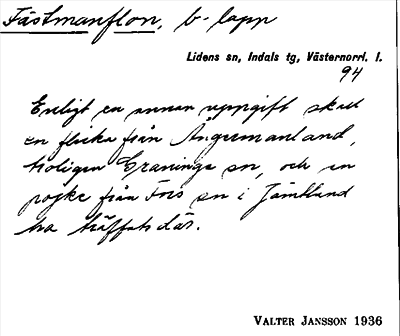 Fästmanflon, b-lapp
Lidens sn, Indals tg, Västernorrl. l.
94
Enligt en annan uppgift skall
en flicka från Ångermanland,
troligen Graninge sn, och en
pojke från Fors sn i Jämtland
ha träffats där.
VALTER JANSSON 1936